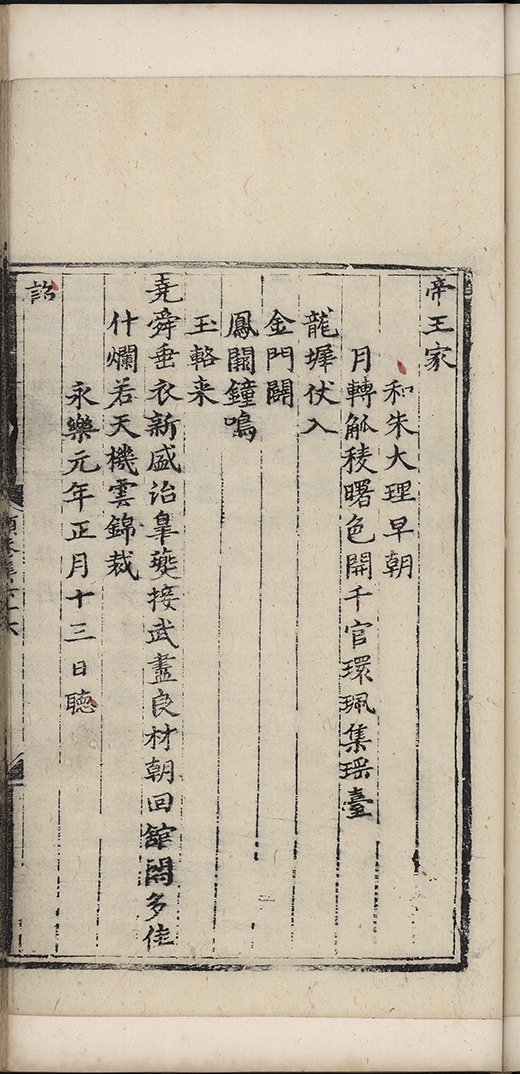 帝王家
和朱大理早朝
月轉觚稜曙色開千官環珮集瑶臺
龍墀仗入
金門闢
鳳闕鐘鳴
玉輅来
堯舜垂衣新盛治皐夔接武盡良材朝回舘閣多佳
什爛若天機雲錦裁
永樂元年正月十三日聴
詔